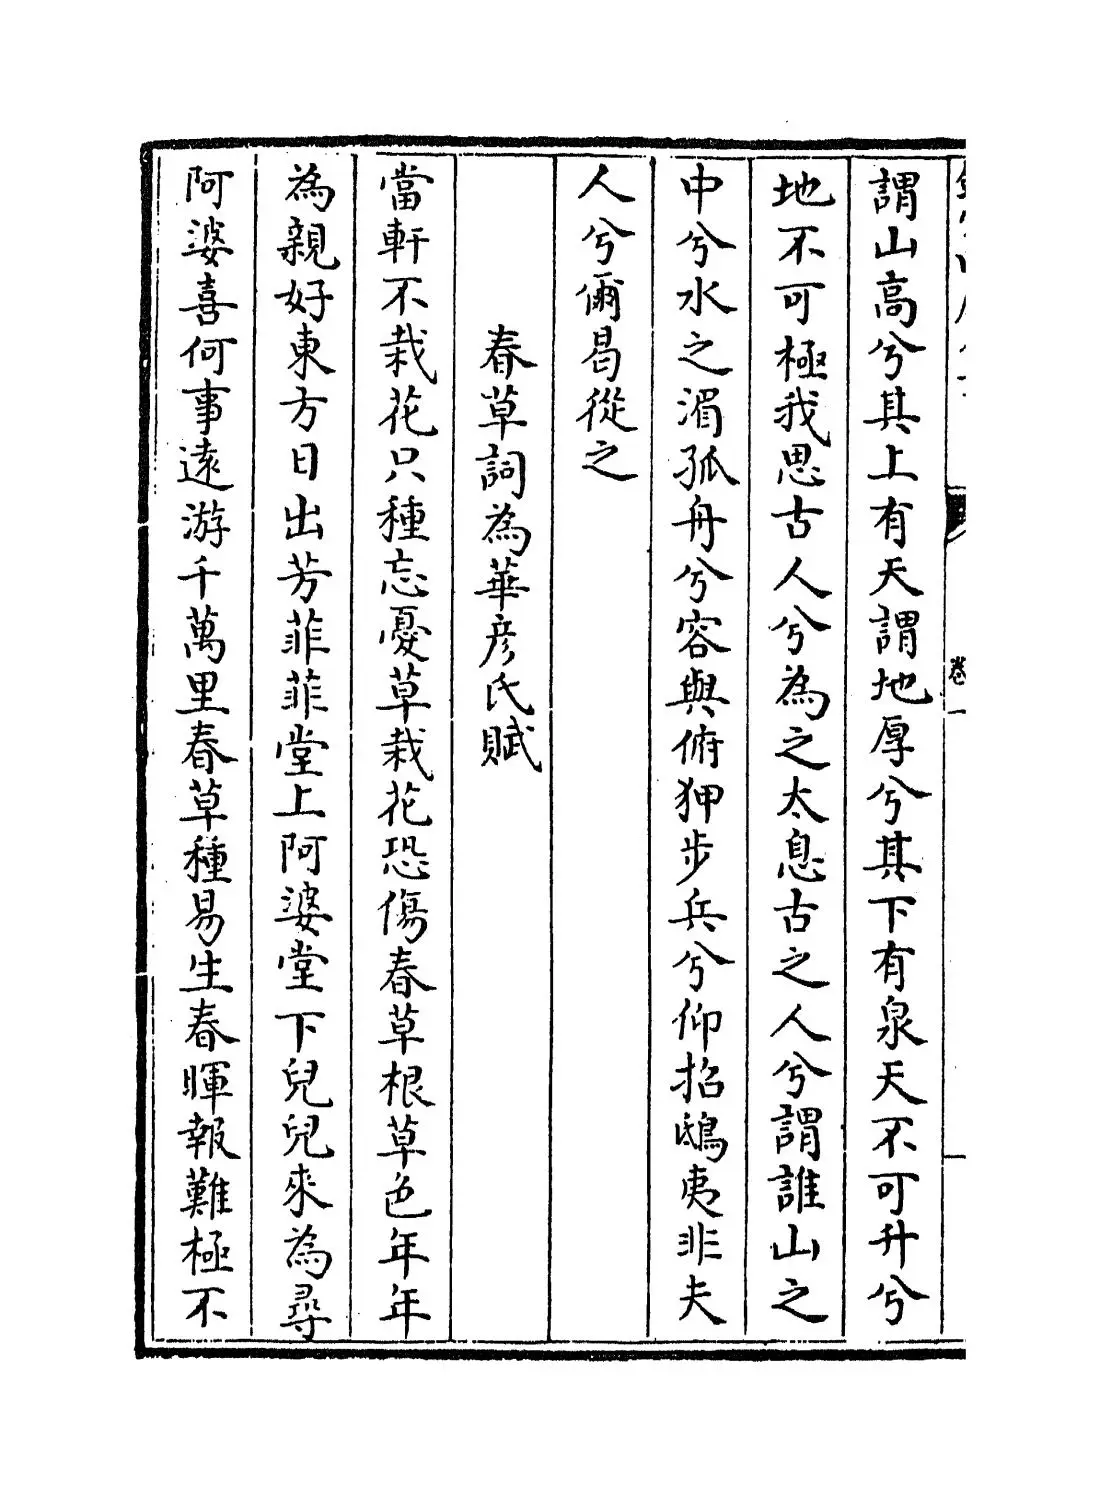 謂山高兮其上有天謂地厚兮其下有泉天不可升兮
地不可極我思古人兮為之太息古之人兮謂誰山之
中兮水之湄孤舟兮容與俯狎步兵兮仰招鴟夷非夫
人兮爾曷從之
春草詞為華彦氏賦
當軒不栽花只種忘憂草栽花恐傷春草根草色年年
為親好東方日出芳菲菲堂上阿婆堂下兒兒來為尋
阿婆喜何事遠游千萬里春草種易生春暉報難極不
卷一